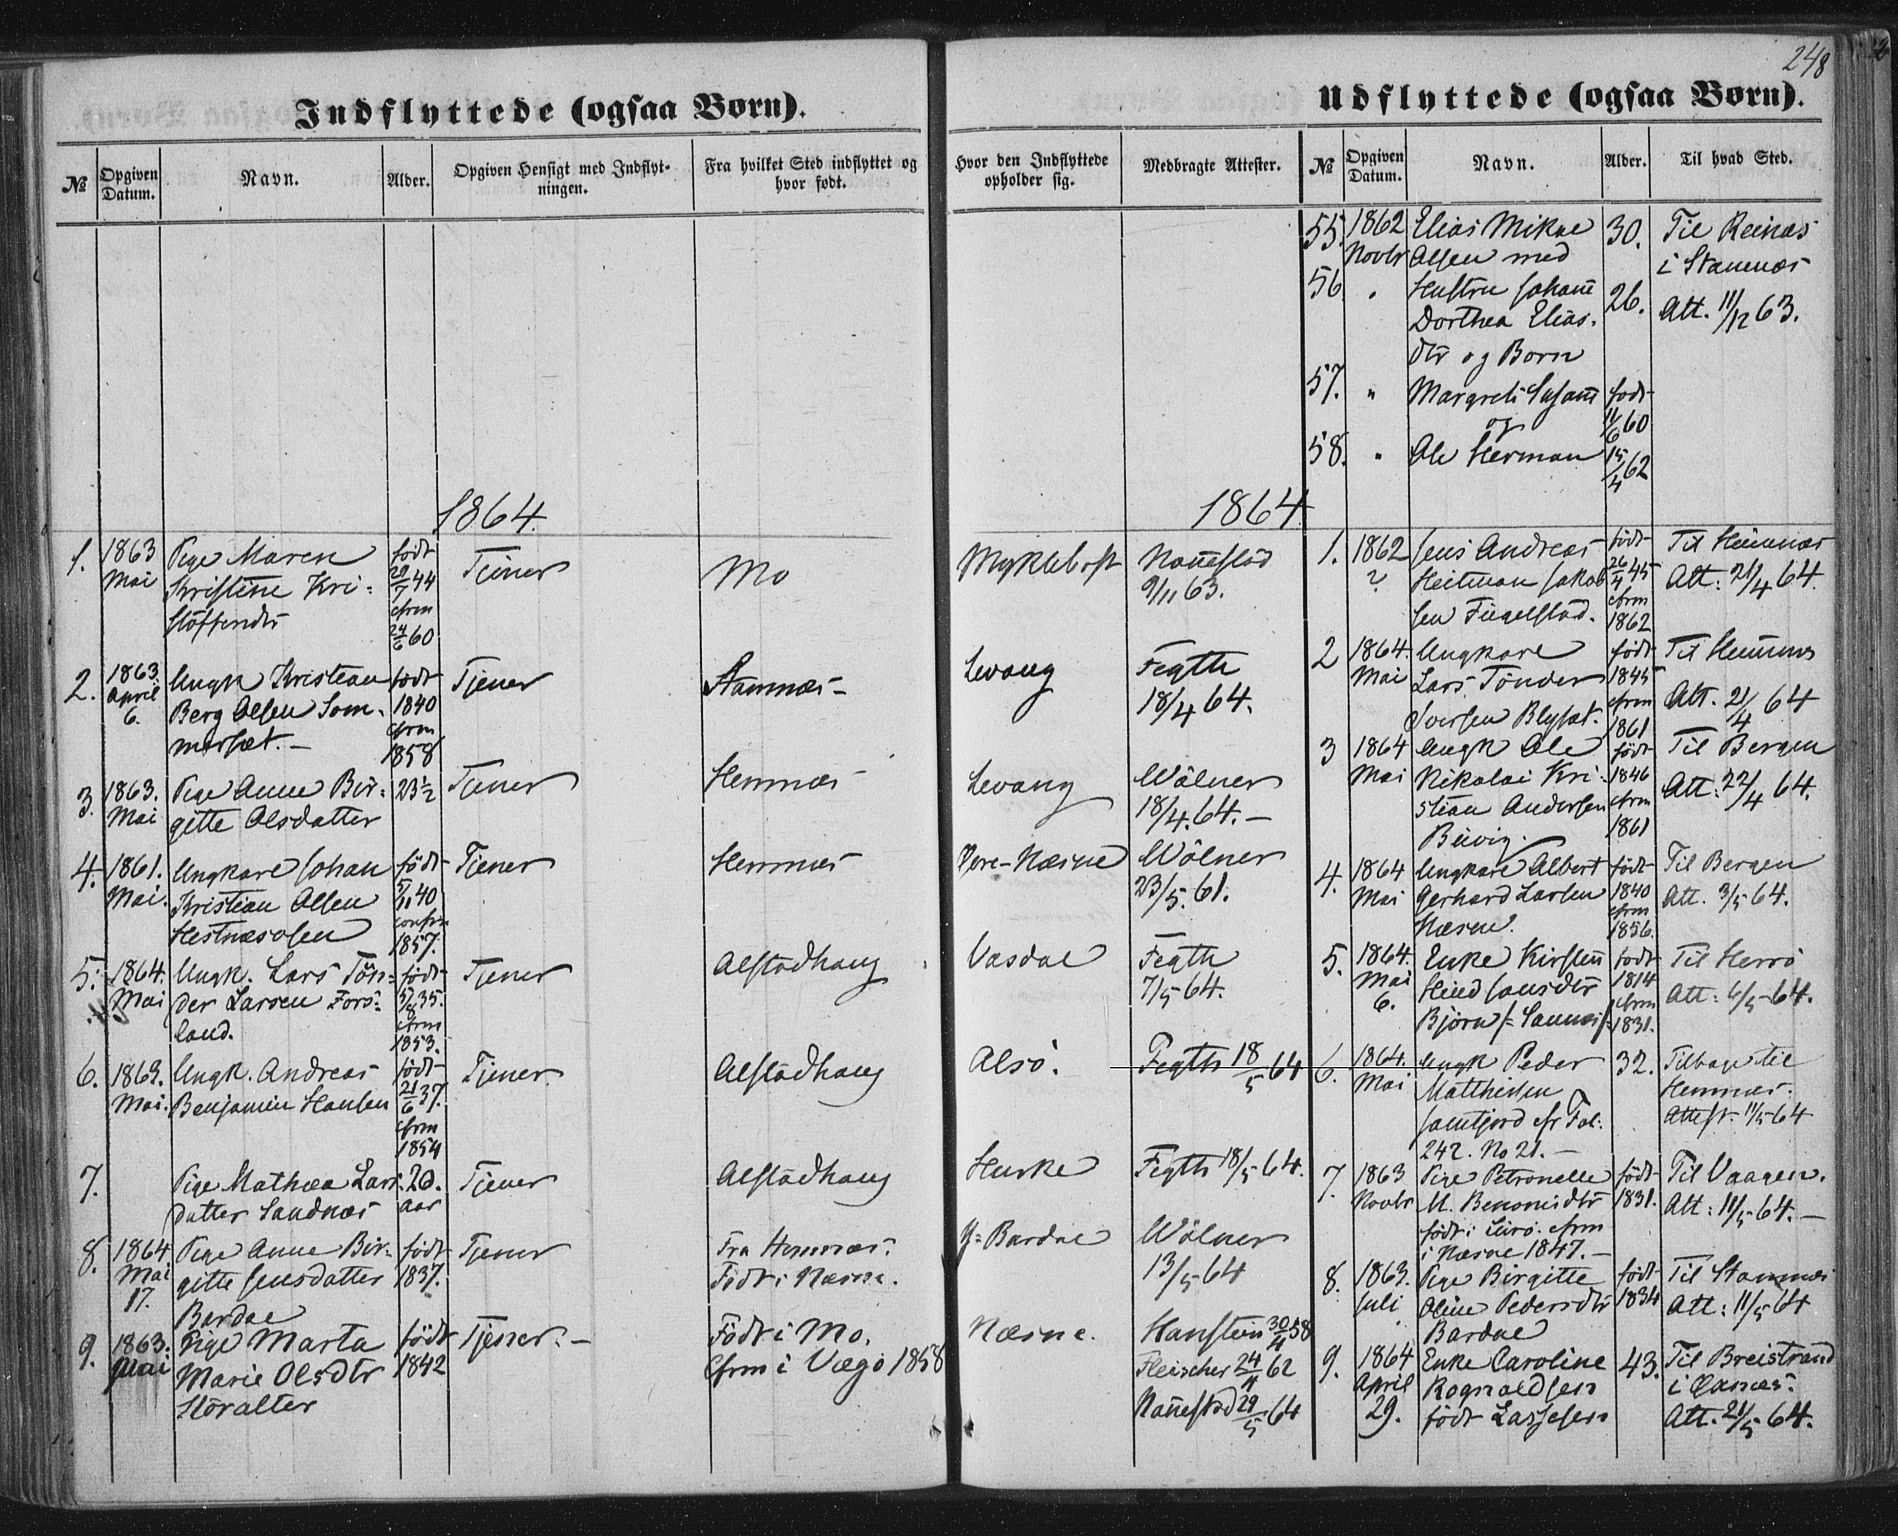 248
Indflyttede (ogsaa Børn).
№
Opgiven Datum.
Navn.
Alder.
Opgiven Hensigt med Indflyt-
ningen.
Fra hvilket Sted indflyttet og
hvor født.
Hvor den Indflyttede
opholder sig.
Medbragte Attester.
1864.
1. 1863 Pige Maren født Tjener Mo Myklebost Nannestad
Mai Kristine Kri- 29/7 44 9/11 63.
stoffersdtr cfrm
24/6 60
2. 1863. Ungk Kristian født Tjener Stamnæs- Levang Fegth
April Berg Olsen Som- 1840 18/4 64.
6. mersæt.- cfrm
1858
3. 1863. Pige Anne Bir- 23½ Tjener Hemnæs Levang Wölner
Mai gitte Olsdatter 18/4. 64.-
4. 1861. Ungkarl Johan født Tjener Hemnæs Næsne Wölner
Mai. Kristian Olsen 5/11 40 23/5. 61.
Hestnæsosen confrm
1857.
5. 1864. Ungk. Lars Tön- født Tjener Alstadhaug Vasdal Fegth
Mai der Larsen Fors- 35. 7/5 64.
land. cfrm
1853.
6. 1863. Ungk. Andreas født Tjener Alstadhaug Alsö. Fegth 18/5 64
Mai. Benjamin Hansen 21/6 37.
cfrm
1854
7. Pige Mathea Lars- 20. Tjener Alstadhaug Huske Fegth 18/5 64.
datter Sandnæs aar
8. 1864 Pige Anne Bir- født Tjener Fra Hemnæs. Y= Bardal Wölner
Mai gitte Jensdatter 1837. Födt i Næsne. 13/5 64
17. Bardal
9. 1863. Pige Marta født Tjener.- Födt i Mo. Næsne. Hanstein 30/4 58
Mai Marie Olsdtr 1842 Cfrm i Vægö 1858 Fleischer 24/4 62
Storalter Nannestad 29/5 64
Udflyttede (ogsaa Børn).
№
Opgiven Datum.
Navn.
Alder.
Til hvad Sted.
55. 1862 Elias Mikal 30. Til Reinæs
Novbr Olsen med i Stamnæs
56. " Hustru Johanne 26. Att. 11/12 63.
Dorthea Elias-
dtr og Børn
57. " Margrete Susanne født
og 11/6 60
58. " Ole Herman 15/4 62
1864
1. 1862 Jens Andreas født Til Hemnæs
? Heitman Jakob- 26/4 45 Att: 21/4 64.
sen cfrm
1862
2 1864. Ungkarl født Til Hemnæs
Mai Lars Tönder 1845 Att. 21/4 64
Iversen cfrm
1861
3 1864 Ungk Ole født Til Bergen
Mai Nikolai Kri- 1846 Att: 22/4 64.
stian Andersen cfrm
1861
4. 1864 Ungkarl Albert født Til Bergen
Mai Gerhard Larsen 1840 Att. 3/5 64.
Næsne. cfrm
1856.
5. 1864. Enke Kirsten født Til Herrö
Mai Hind Jansdtr 1814 Att: 6/5 64.
6. Björn cfrm
1831.
6. 1864. Ungk Peder 32. Tilbage til
Mai Matthisen Hemnæs.
cfr Fol: Attest. 11/5 64
242. No 21.-
7. 1863 Pige Petronelle født Til Vaagen.
Novbr M. Benonisdtr 1831. Att: 11/5 64.-
født i Lurö. cfrm
i Næsne 1847.-
8. 1863. Pige Birgitte født Til Stamnæs
Juli Oline Pedersdtr 1834 Att: 11/5 64
Bardal
9. 1864 Enke Caroline 43. Til Breistrand
April Rognaldsen i Oxnæs.
29. født Lassesen Att. 21/5 64.